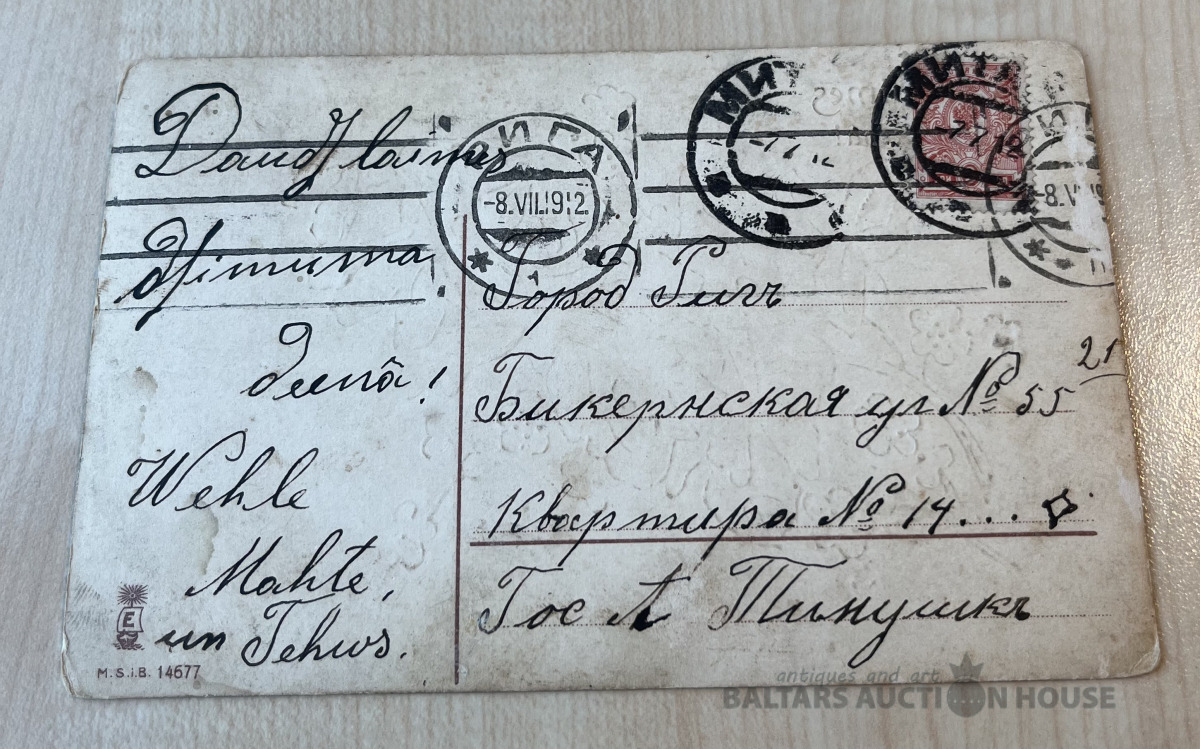 Daudz laimes
dzimuma
deenâ!
Wehle
Mahte,
un Tehws.
M.S.i.B. 14677
E
РИГА
-8.VII.1912.
МИТА
7.7.12
МИТА
7.7.12
-8.V
Город Ригъ
Бикернская ул № 55 21
Квартира № 14...
Гос А Тинушкъ
antiques and art
BALTARS AUCTION HOUSE